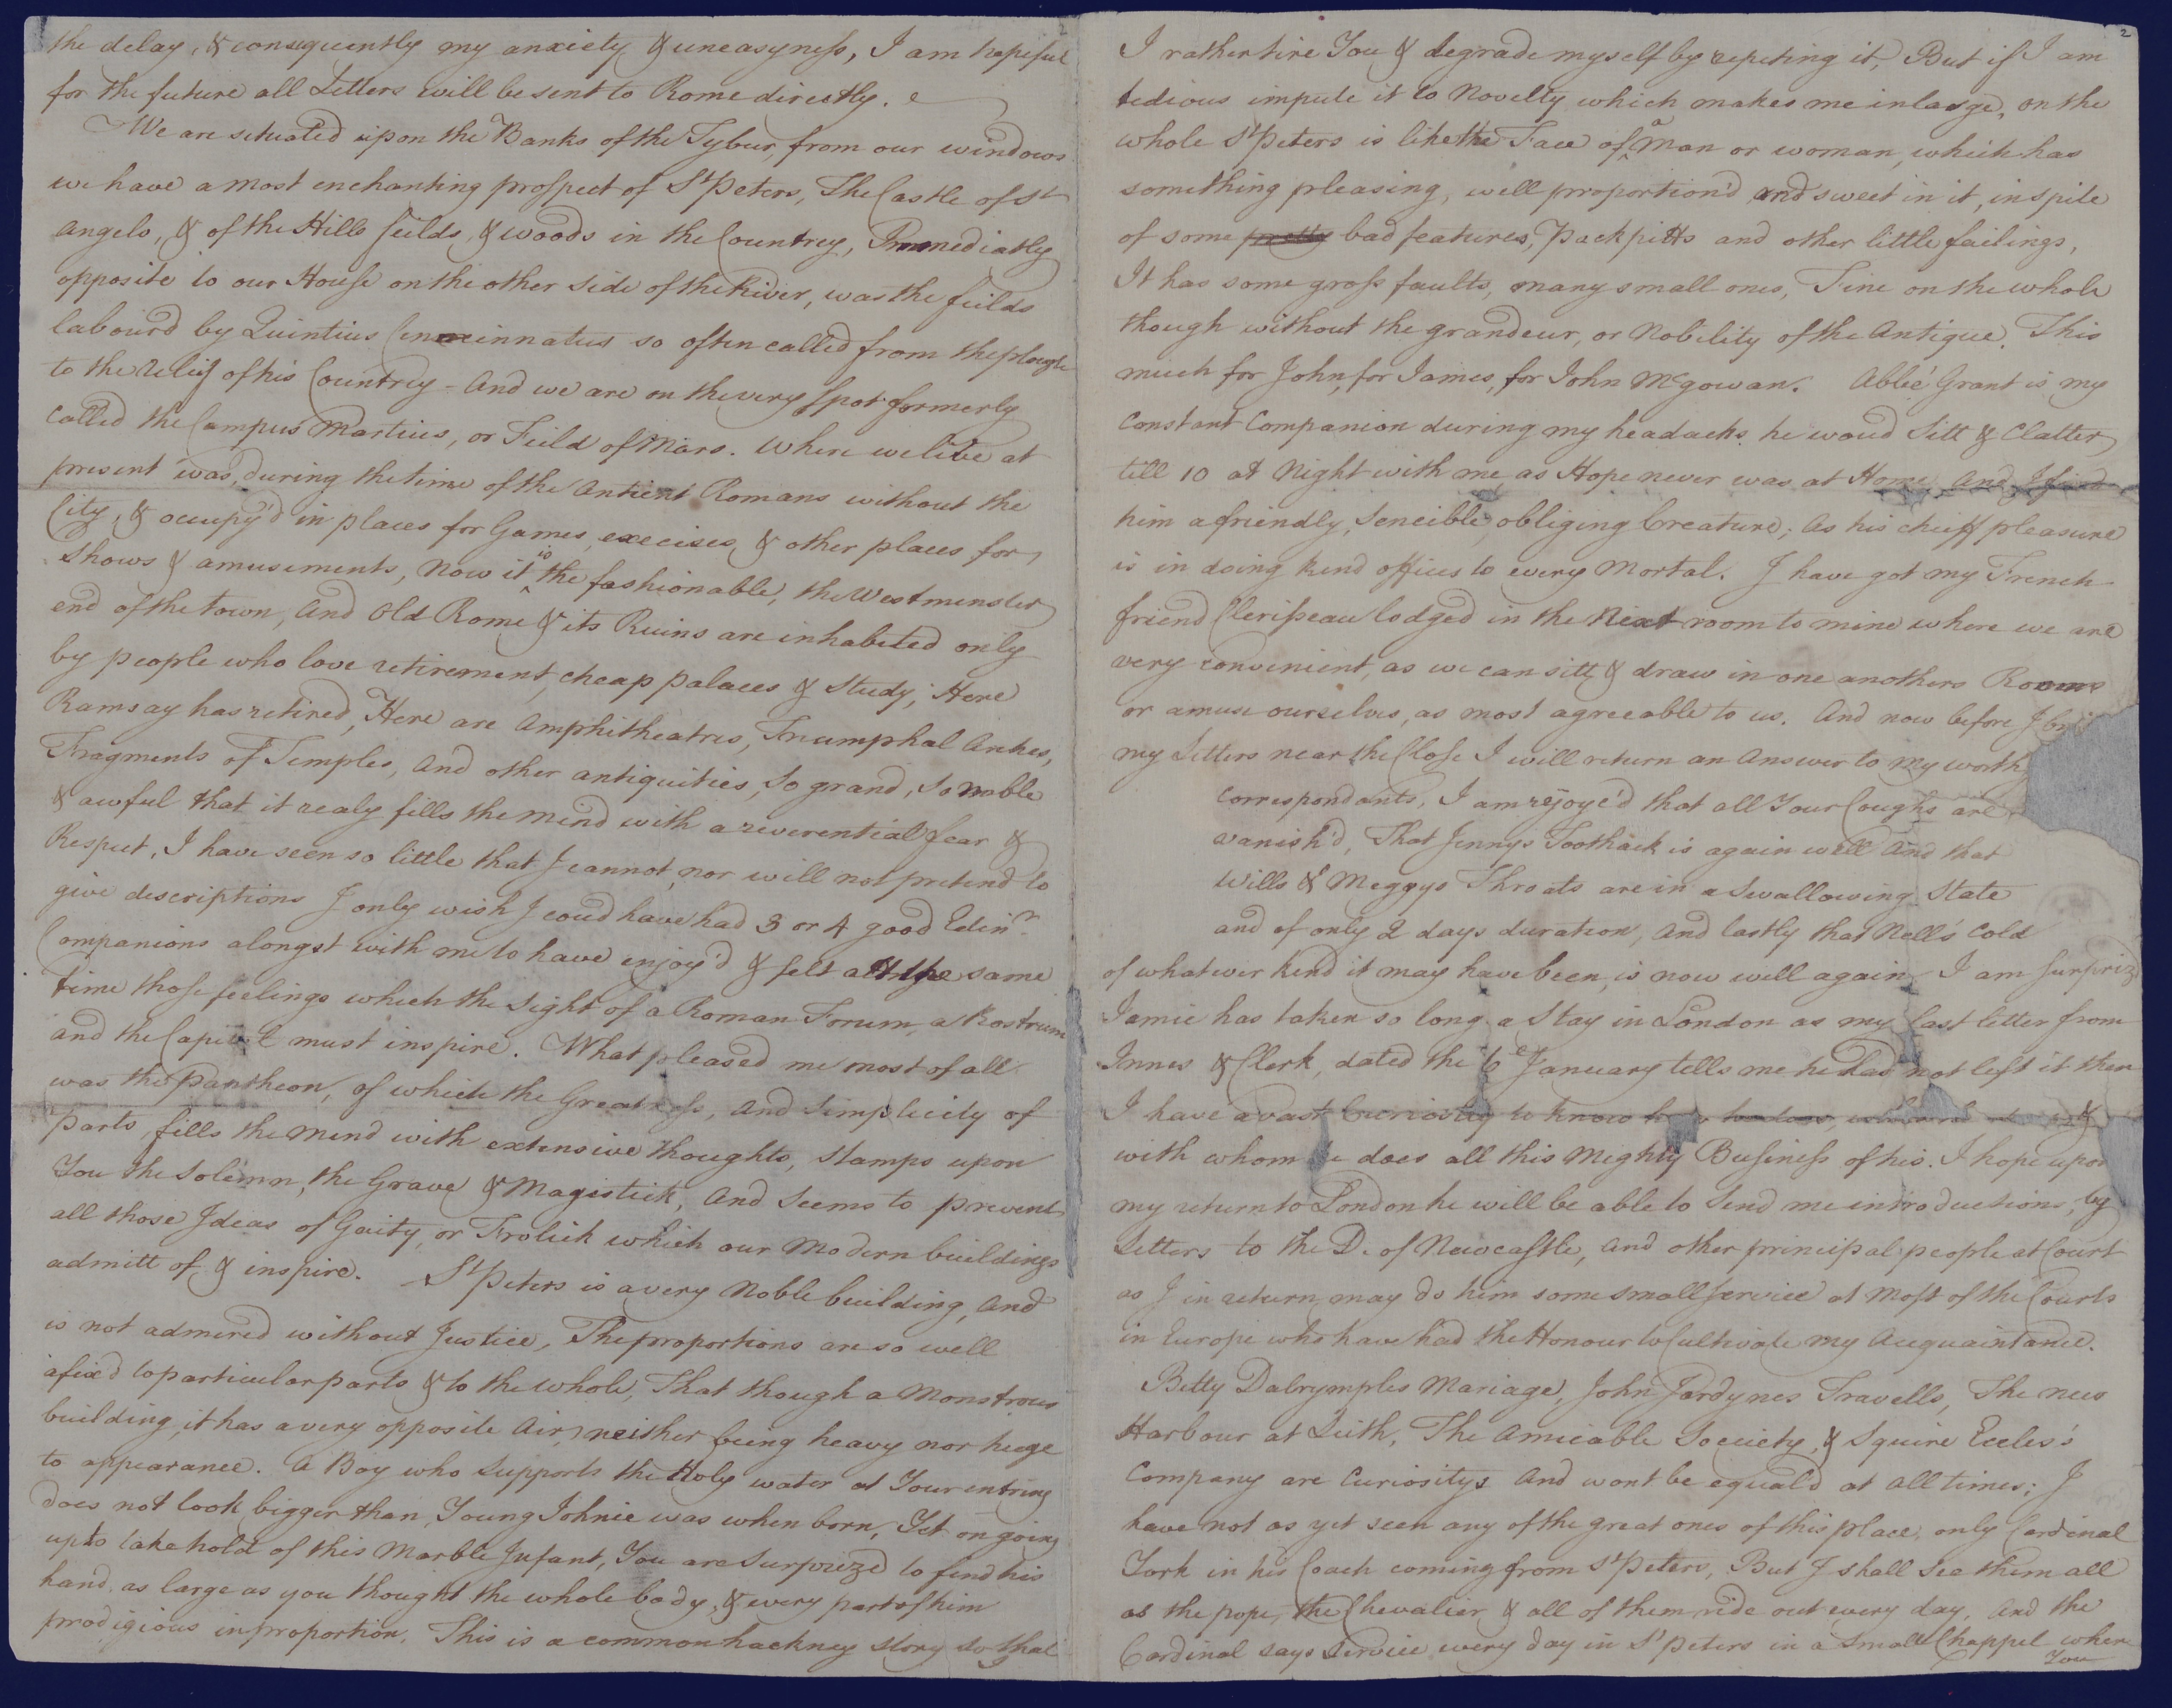 the delay, & consequently my anxiety & uneasyness, I am hopefull
for the future all Letters will be sent to Rome directly.
We are situated upon the Banks of the Tybur, from our windows
we have a most enchanting prospect of St Peters, The Castle of St
Angelo, & of the Hills feilds, & woods in the Countrey, Immediatly
opposite to our House on the other side of the River, was the feilds
labour'd by Quintius Cincinnatus so often called from the plough
to the releif of his Countrey - And we are on the very spot formerly
called the Campus Martius, or Feild of Mars. Where we live at
present was, during the time of the Antient Romans without the
City, & occupy'd in places for Games, execises, & other places for
Shows & amusements, Now it is the fashionable, the Westminster
end of the town, And Old Rome & its Ruins are inhabited only
by people who love retirement, cheap palaces & study; Here
Ramsay has retired, Here are Amphitheatres, Triumphal Arches,
Fragments of Temples, And other antiquities, So grand, So noble
& awful that it realy fills the mind with a reverential fear &
Respect, I have seen so little that I cannot, nor will not pretend to
give descriptions I only wish I coud have had 3 or 4 good Edinr
Companions alongst with me to have enjoy'd & felt att the same
time those feelings which the sight of a Roman Forum, a Rostrum
and the Capitol must inspire. What pleased me most of all
was the Pantheon, of which the Greatness, And Simplicity of
Parts, fills the mind with extensive thoughts, Stamps upon
You the Solemn, the Grave & Magistick, And Seems to prevent
all those Ideas of Gaity, or Frolick which our Modern buildings
admitt of & inspire. St Peters is a very Noble building, And
is not admired without Justice, The proportions are so well
afix'd to particular parts & to the whole, That though a Monstrous
building, it has a very opposite Air, neither being heavy nor huge
to appearance. A Boy who supports the Holy water at Your entring
does not look bigger than, Young Johnie was when born, Yet on going
up to take hold of this Marble Infant, You are Surprized to find his
hand as large as you thought the whole body, & every part of him
prodigious in proportion. This is a common hackney story So that
2
I rather tire You & degrade myself by repeting it, But if I am
tedious impute it to Novelty which makes me inlarge, on the
whole St Peters is like the Face of a Man or woman, which has
something pleasing, well proportion'd and sweet in it, in spite
of some pretty bad features, Pack pitts and other little failings,
It has some gross faults, many small ones, Fine on the whole
though without the grandeur, or Nobility of the Antique. This
much for John, for James, for John McGowan. Abbé Grant is my
Constant Companion during my headachs. he woud Sitt & Clatter
till 10 at Night with me, as Hope never was at Home, And I find
him a friendly, Sencible, obliging Creature; As his cheiff pleasure
is in doing kind offices to every Mortal. I have got my French
friend Clerisseau lodged in the Next room to mine where we are
very convenient, as we can sitt & draw in one anothers Rooms
or amuse ourselves, as most agreeable to us. And now before I
my Letters near the Close I will return an Answer to my
Correspondants, I am rejoyc'd that all Your Coughs are
vanish'd, That Jennys Toothack is again well And that
Wills & Meggys Throats are in a Swallowing State
and of only 2 days duration, And lastly that Nell's Cold
of whatever kend it may have been, is now well again, I am
Jamie has taken so long a Stay in London as my last letter from
Innes & Clerk, dated the January tells me he had not left it then
I have a vast Curiosity to know &
with whom he does all this Mighty Business of his. I hope upon
my return to London he will be able to Send me introductions, by
Letters to the D. of Newcastle, And other principal people at Court
as I in return, may do him some small Service at Most of the Courts
in Europe who have had the Honour to Cultivate my Acquaintance.
Betty Dalrymples Mariage, John Jardynes Travells, The new
Harbour at Leith, The Amicable Society, & Squire Eccles's
Company are Curiositys And wont be equal'd at all times; I
have not as yet seen any of the great ones of this place, only Cardinal
York in his Coach coming from St Peters, But I shall See them all
as the pope, the Chevalier & all of them ride out every day, And the
Cardinal says Service every day in St Peters in a Small Chappel where
You